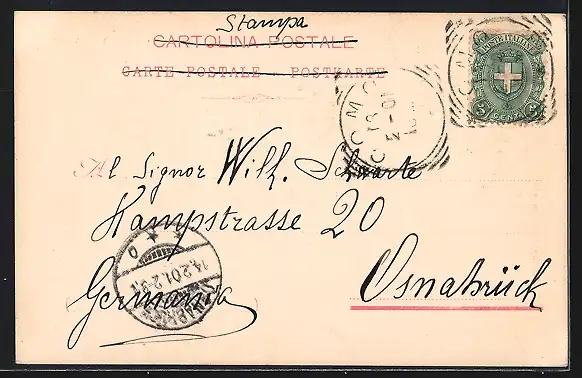 Stampa
CARTOLINA POSTALE
CARTE POSTALE - POSTKARTE
POSTE ITALIANE
5 CENT. 5
COMO
12
2-01
Al Signor Wilh. Schwarte
Hampstrasse 20
Osnabrück
Germania
OSNABRÜCK
14.2.01.2-3N.